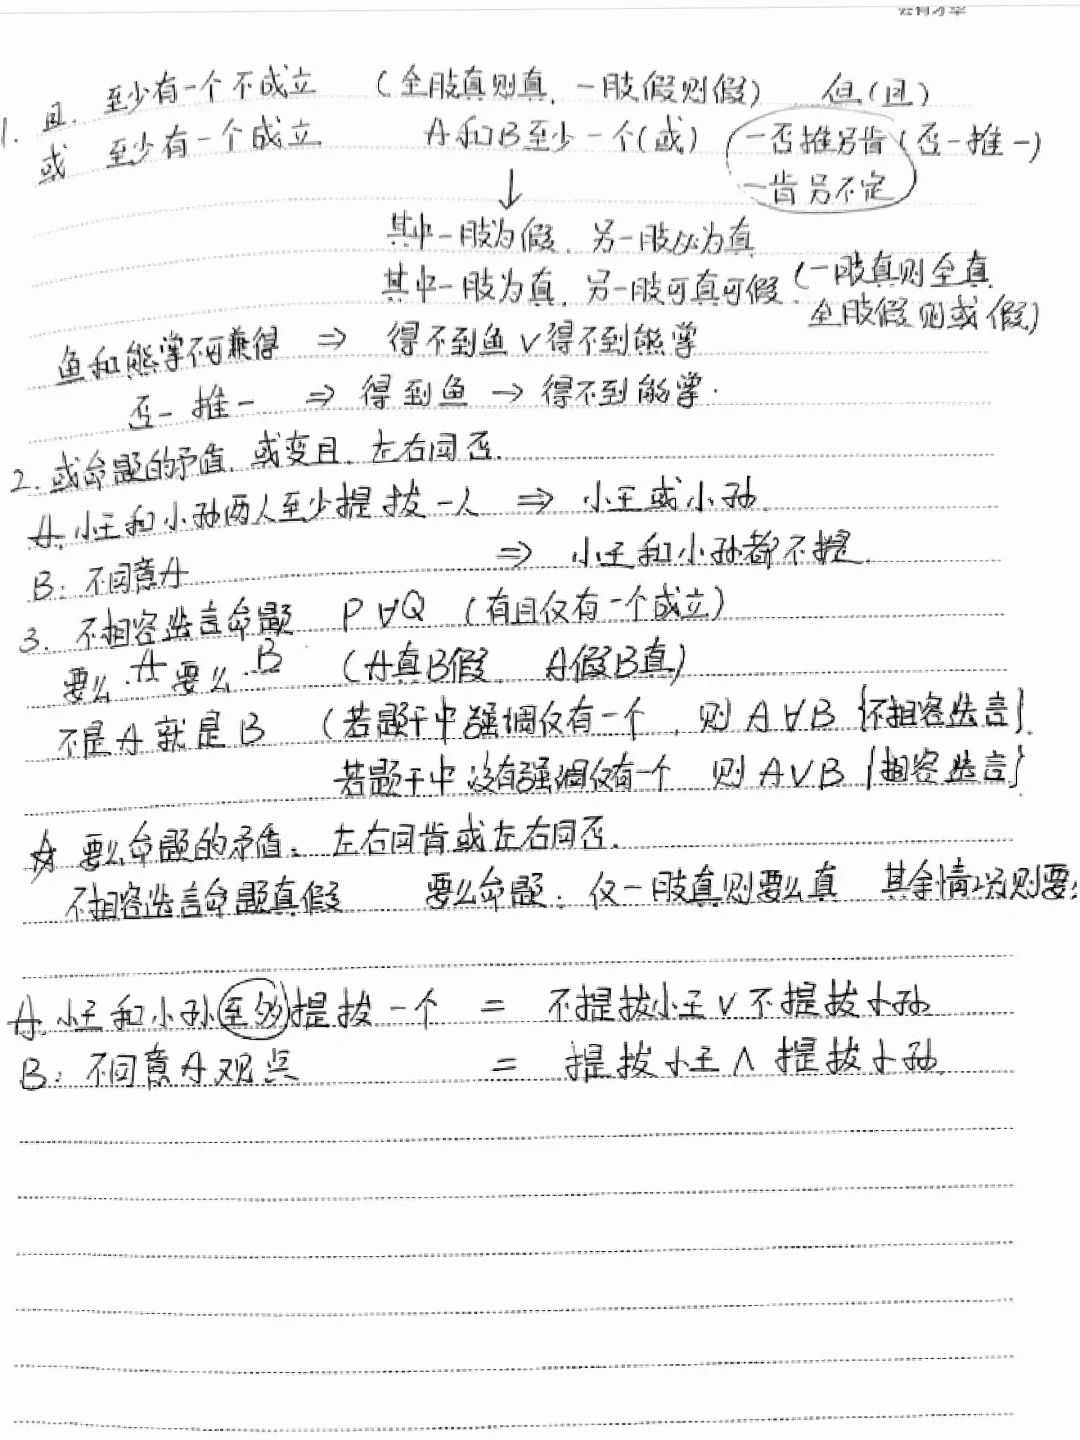 1. 且. 至少有一个不成立 (全肢真则真, 一肢假则假) 但(且)
或 至少有一个成立 A和B至少一个(或) 一否推另肯 (否一推一)
一肯另不定
↓
其中一肢为假, 另一肢必为真
其中一肢为真, 另一肢可真可假 (一肢真则全真
全肢假则或假)
鱼和熊掌不可兼得 ⇒ 得不到鱼∨得不到熊掌
否一推一 ⇒ 得到鱼 → 得不到熊掌.
2. 或命题的矛盾, 或变且, 左右同否.
A. 小王和小孙两人至少提拔一人 ⇒ 小王或小孙.
B: 不同意A ⇒ 小王和小孙都不提.
3. 不相容选言命题 P∀Q (有且仅有一个成立)
要么A要么B (A真B假, A假B真)
不是A就是B (若题干中强调仅有一个, 则A∀B {不相容选言}.
若题干中没有强调仅有一个 则A∨B {相容选言}
☆ 要么命题的矛盾: 左右同肯或左右同否.
不相容选言命题真假 要么命题: 仅一肢真则要么真 其余情况则要
A. 小王和小孙至多提拔一个 = 不提拔小王∨不提拔小孙
B: 不同意A观点 = 提拔小王∧提拔小孙.